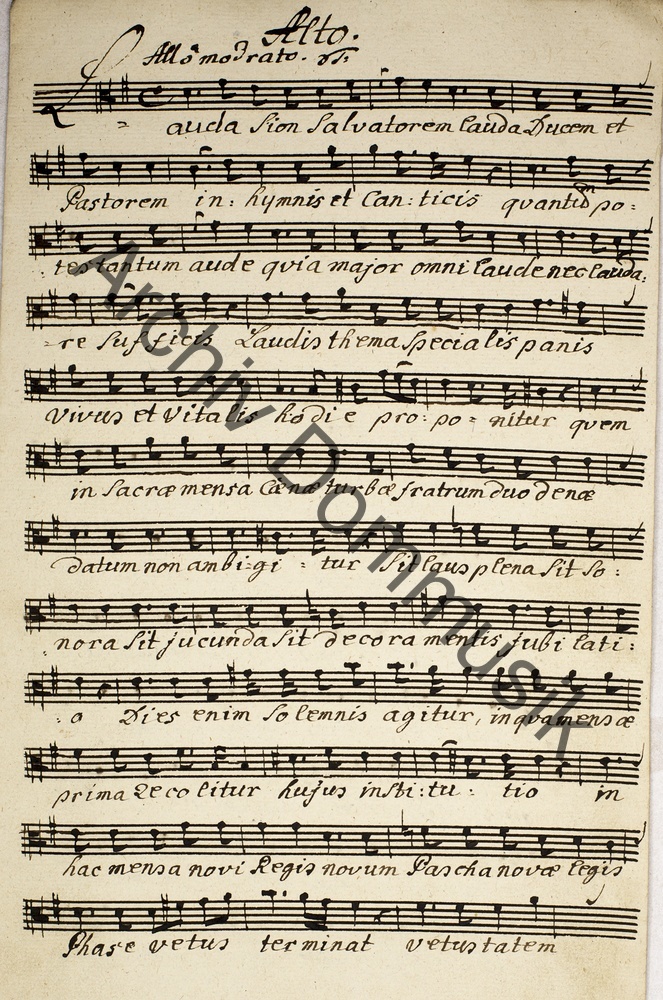 Alto.
Allo modrato.
Lauda Sion Salvatorem lauda Ducem et
Pastorem in: hymnis et Can: ticis quantum po:
tes tantum aude qvia major omni laude nec lauda:
re sufficis Laudis thema specialis panis
vivus et vitalis hodie pro: po: nitur qvem
in sacræ mensa Cœnæ turbæ fratrum duodenæ
datum non ambi: gi: tur sit laus plena sit so:
nora sit jucunda sit decora mentis jubilati:
o Dies enim solemnis agitur, in qva mensæ
prima Recolitur hujus insti: tu: tio in
hac mensa novi Regis novum Pascha novæ legis
Phase vetus terminat vetustatem
Archiv Dommusik